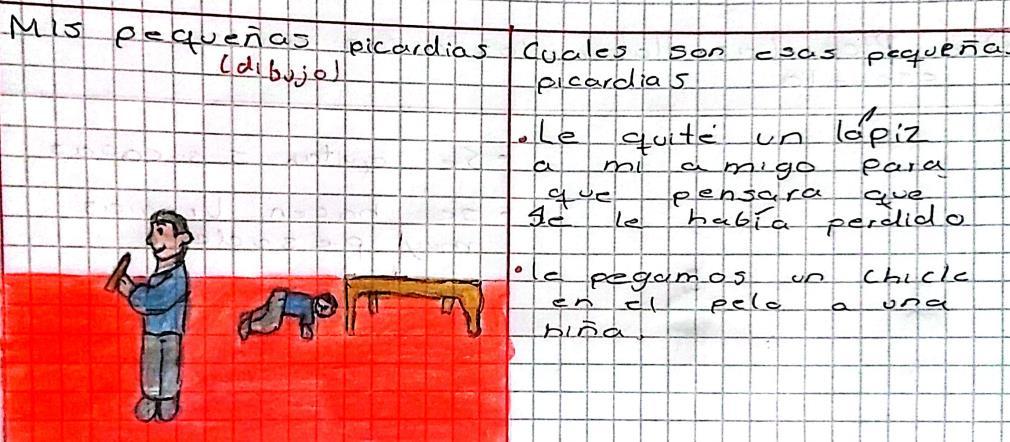 Mis pequeñas picardias
(dibujo)
Cuales son esas pequeña
picardias
• Le quité un lápiz
a mi amigo para
que pensara que
se le había perdido
• le pegamos un chicle
en el pelo a una
niña.